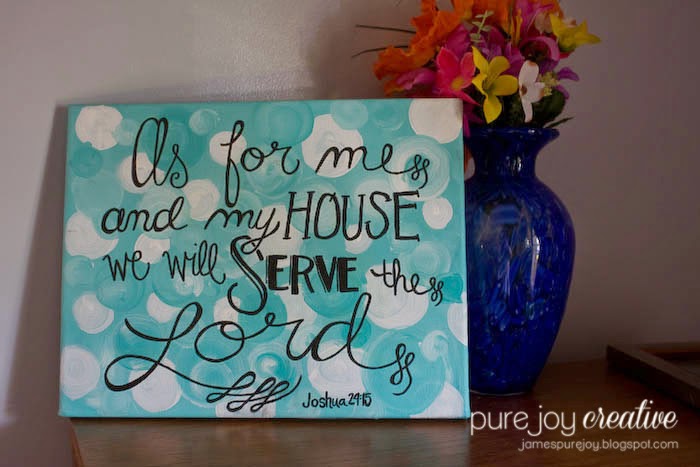 As for me
and my HOUSE
we will SERVE the
Lord
Joshua 24:15
pure joy creative
jamespurejoy.blogspot.com